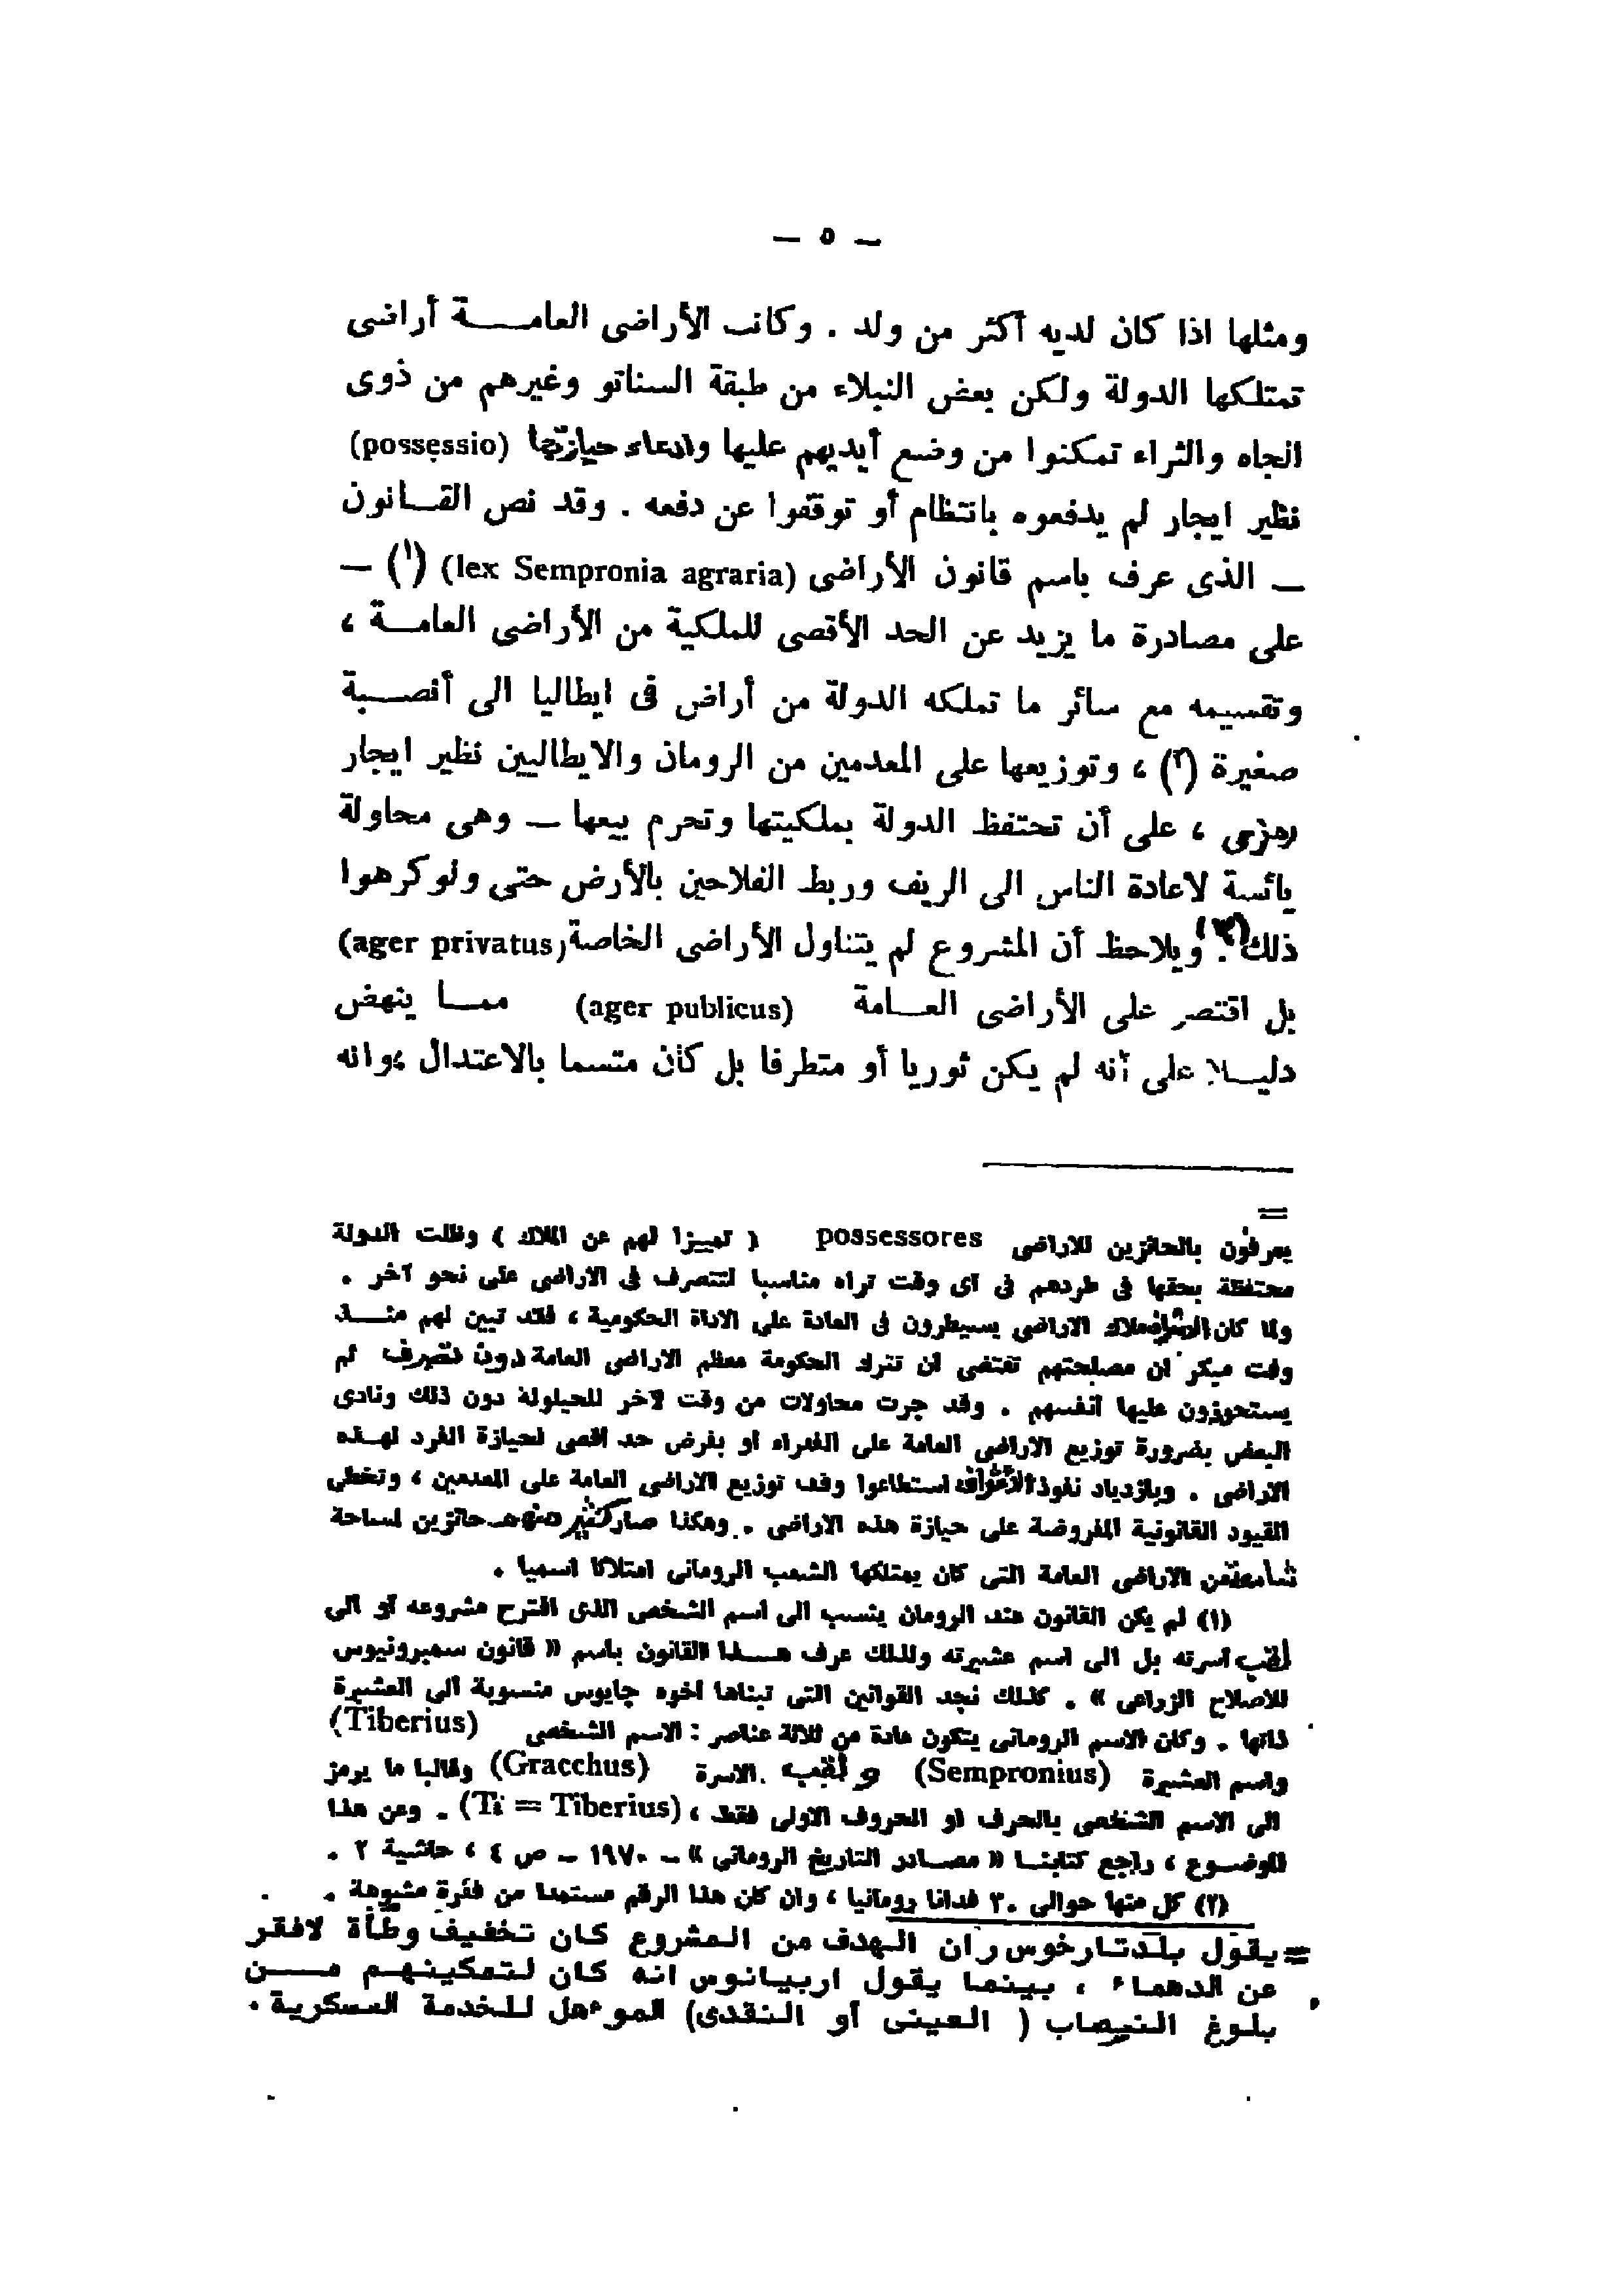 — ٥ —
ومثلها اذا كان لديه أكثر من ولد . وكانت الأراضى العامـــة أراضى
تمتلكها الدولة ولكن بعض النبلاء من طبقة السناتو وغيرهم من ذوى
الجاه والثراء تمكنوا من وضع أيديهم عليها وادعاء حيازتها (possessio)
نظير ايجار لم يدفعوه بانتظام أو توقفوا عن دفعه . وقد نص القـانون
— الذى عرف باسم قانون الأراضى (lex Sempronia agraria) (١) —
على مصادرة ما يزيد عن الحد الأقصى للملكية من الأراضى العامــة ،
وتقسيمه مع سائر ما تملكه الدولة من أراض فى ايطاليا الى أنصــبة
صغيرة (٢) ، وتوزيعها على المعدمين من الرومان والايطاليين نظير ايجار
رمزى ، على أن تحتفظ الدولة بملكيتها وتحرم بيعها — وهى محاولة
يائسة لاعادة الناس الى الريف وربط الفلاحين بالأرض حتى ولو كرهوا
ذلك (٣) . ويلاحظ أن المشروع لم يتناول الأراضى الخاصة (ager privatus)
بل اقتصر على الأراضى العــامة (ager publicus) ممــا ينهض
دليــلا على أنه لم يكن ثوريا أو متطرفا بل كان متسما بالاعتدال ، وانه
=
يعرفون بالحائزين للاراضى possessores ( تمييزا لهم عن الملاك ) وظلت الدولة
محتفظة بحقها فى طردهم فى أى وقت تراه مناسبا لتتصرف فى الاراضى على نحو آخر .
ولما كان ملاك الاراضى يسيطرون فى العادة على الاداة الحكومية ، فقد تبين لهم منــذ
وقت مبكر ان مصلحتهم تقتضى ان تترك الحكومة معظم الاراضى العامة دون تصرف ثم
يستحوزون عليها أنفسهم . وقد جرت محاولات من وقت لآخر للحيلولة دون ذلك ونادى
البعض بضرورة توزيع الاراضى العامة على الفقراء أو بفرض حد اقصى لحيازة الفرد لهــذه
الاراضى . وبازدياد نفوذ الأشراف استطاعوا وقف توزيع الاراضى العامة على المعدمين ، وتخطى
القيود القانونية المفروضة على حيازة هذه الاراضى . وهكذا صار كثير منهم حائزين لمساحة
شاسعة من الاراضى العامة التى كان يمتلكها الشعب الرومانى امتلاكا اسميا .
(١) لم يكن القانون عند الرومان ينسب الى اسم الشخص الذى اقترح مشروعه أو الى
لقب أسرته بل الى اسم عشيرته ولذلك عرف هــذا القانون باسم « قانون سمبرونيوس
للاصلاح الزراعى » . كذلك نجد القوانين التى تبناها اخوه جايوس منسوبة الى العشيرة
ذاتها . وكان الاسم الرومانى يتكون عادة من ثلاثة عناصر : الاسم الشخصى (Tiberius)
واسم العشيرة (Sempronius) و لقب الاسرة (Gracchus) وغالبا ما يرمز
الى الاسم الشخصى بالحرف أو الحروف الاولى فقط ، (Ti = Tiberius) . وعن هذا
الموضــوع ، راجع كتابنــا « مصــادر التاريخ الرومانى » – ١٩٧٠ – ص ٤ ، حاشية ٢ .
(٢) كل منها حوالى ٣٠ فدانا رومانيا ، وان كان هذا الرقم مستمدا من فقرة مشبوهة .
= يقول بلدتارخوس ان الهدف من المشروع كان تخفيف وطأة لافقر
عن الدهماء ، بينما يقول اربيانوس انه كان لتمكينهم مــن
بلوغ النصاب ( العينى أو النقدى) الموءهل للخدمة العسكرية .